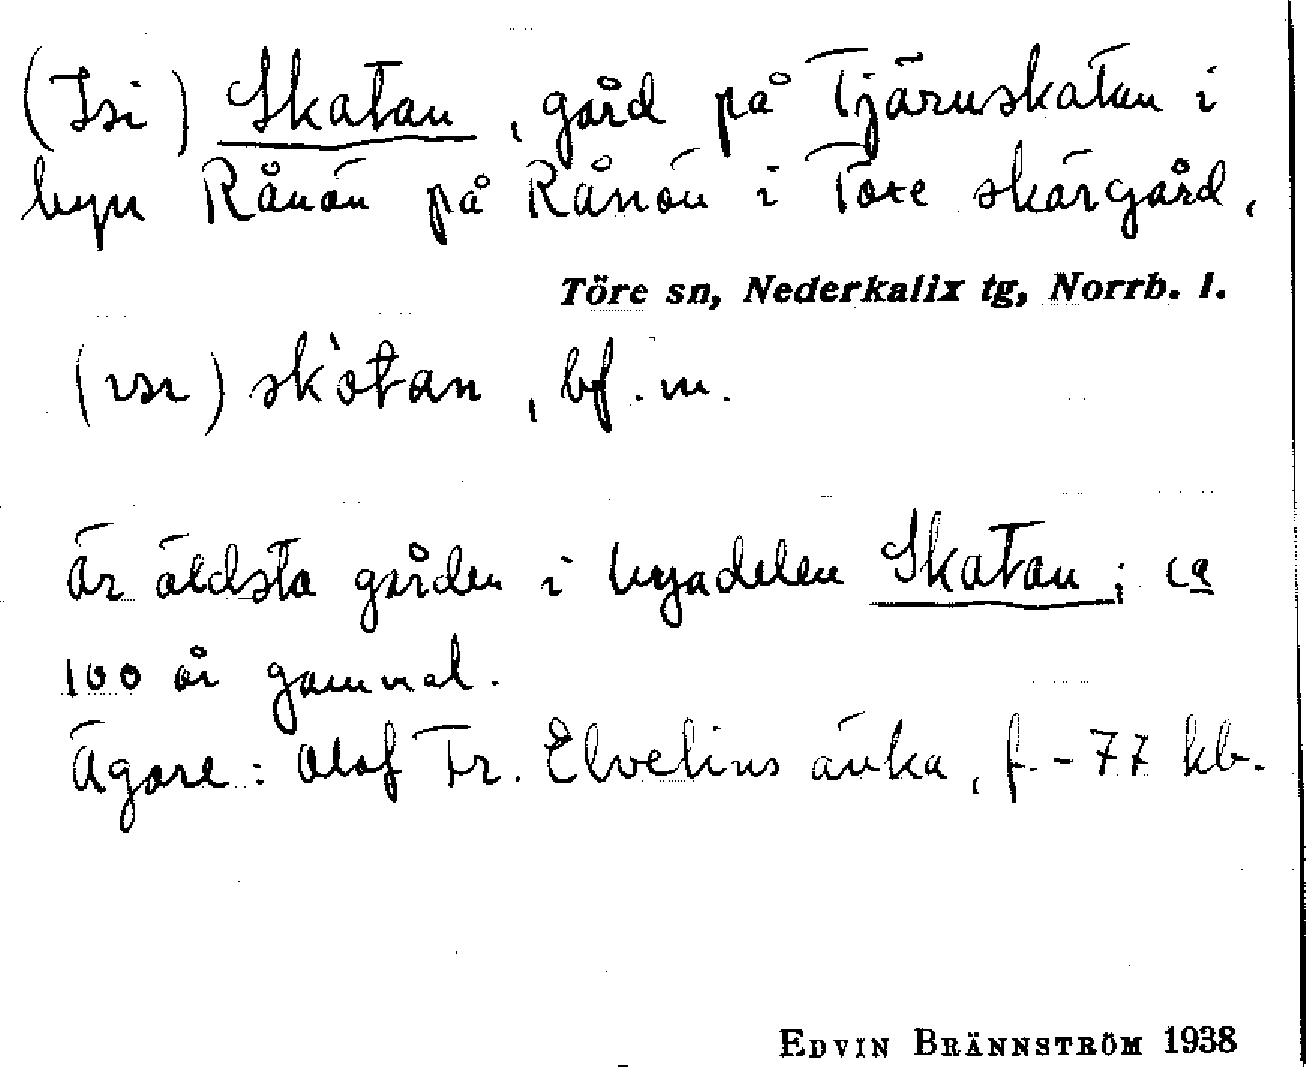 (Isi) Skatan, gård på Tjäruskatan i
byn Rånön på Rånön i Töre skärgård.
Töre sn, Nederkalix tg, Norrb. l.
(ɪsɪ) skòtan, bf. m.
Är äldsta gården i byadelen Skatan; ca
100 år gammal.
Ägare: Olof Fr. Elvelius änka, f. -77 kb.
EDVIN BRÄNNSTRÖM 1938